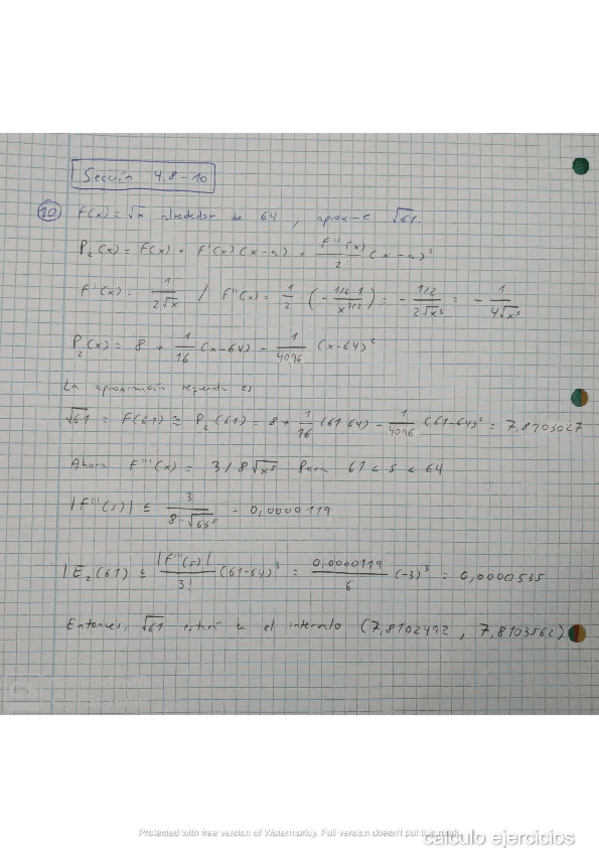 Sección 4.8-10
10 f(x) = √x alrededor de 64, aproxime √61.
P₂(x) = F(x) + F'(x)(x-a) + F''(x)/2! (x-a)²
F'(x) = 1/(2√x) / F''(x) = 1/2 · (- 1/2·1/x^(3/2)) = - (1/2)/(2√x³) = - 1/(4√x³)
P₂(x) = 8 + 1/16 (x-64) - 1/4096 (x-64)²
La aproximación requerida es
√61 = F(61) ≅ P₂(61) = 8 + 1/16 (61-64) - 1/4096 (61-64)² = 7,8103027
Ahora F'''(x) = 3/8√x⁵ Para 61 < s < 64
|F'''(s)| ≤ 3/(8·√61⁵) = 0,0000119
|E₂(61)| ≤ |F'''(s)|/3! (61-64)³ = 0,0000119/6 (-3)³ = 0,0000535
Entonces, √61 estará en el intervalo (7,8102492, 7,8103562)
Protected with free version of Watermarkly. Full version doesn't put this mark.
calculo ejercicios